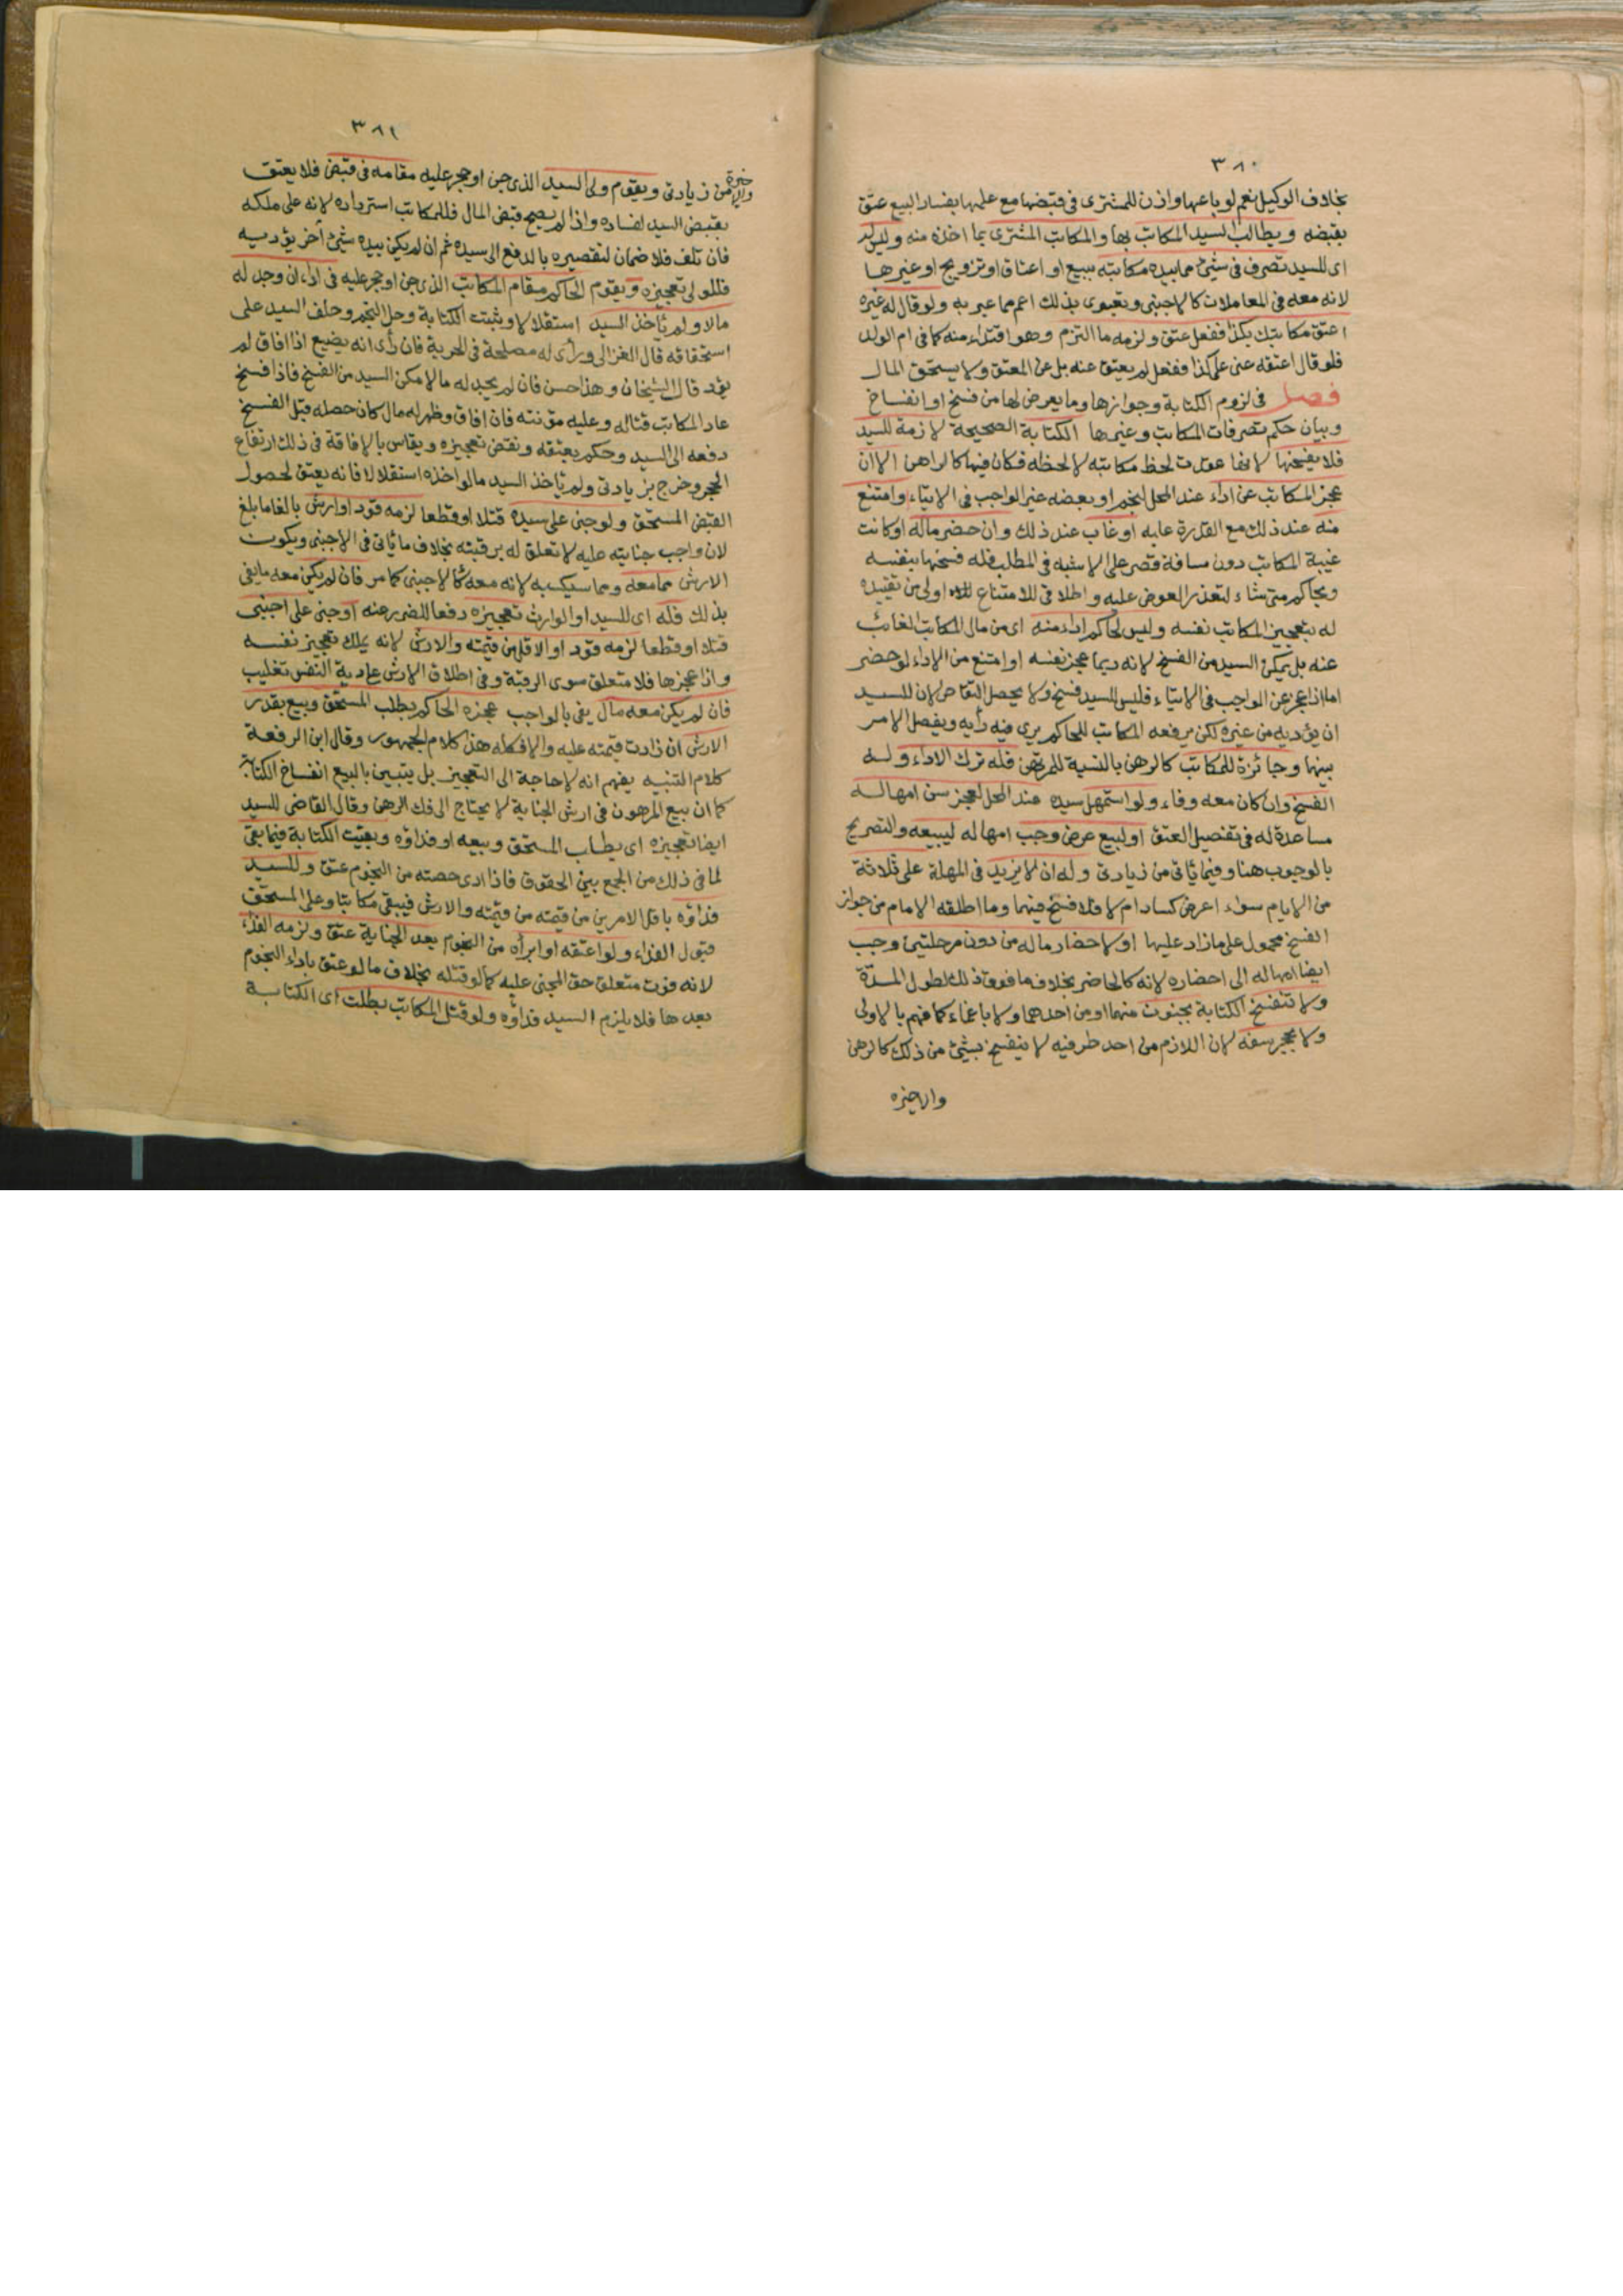 ٣٨٠
بخلاف الوكيل نعم لو باعها واذن للمشترى فى قبضها مع علمها بفساد البيع عتق
بقبضه ويطالب السيد المكاتب بها والمكاتب المشترى بما اخذه منه وليس له
اى للسيد تصرف فى شئ مما بيده مكاتبه ببيع او اعتاق او تزويج او غيرها
لانه معه فى المعاملات كالاجنبى وتعبيرى بذلك اعم مما عبر به ولو قال له غيره
اعتق مكاتبك بكذا ففعل عتق ولزمه ما التزم وهو افتداء منه كما فى ام الولد
فلو قال اعتقه عنى على كذا ففعل لم يعتق عنه بل عن المعتق ولا يستحق المال
فصل فى لزوم الكتابة وجوازها وما يعرض لها من فسخ او انفساخ
وبيان حكم تصرفات المكاتب وغيرها الكتابة الصحيحة لازمة للسيد
فلا يفسخها لانها عقدت لحظ مكاتبه لا لحظه فكان فيها كالراهن الا ان
عجز المكاتب عن اداء عند المحل لنجم او بعضه غير الواجب فى الايتاء وامتنع
منه عند ذلك مع القدرة عليه او غاب عند ذلك وان حضر ماله او كانت
غيبة المكاتب دون مسافة قصر على الاشبه فى المطلب فله فسخها بنفسه
وبحاكم متى شاء لتعذر العوض عليه واطلاقى للامتناع اولى من تقييده
له بتعجيز المكاتب نفسه وليس لحاكم اداء منه اى من مال المكاتب الغائب
عنه بل يمكن السيد من الفسخ لانه ربما عجز نفسه او امتنع من الاداء لو حضر
اما اذا عجز عن الواجب فى الايتاء فليس للسيد فسخ ولا يحصل التقاص لان للسيد
ان يؤديه من غيره لكن يرفعه المكاتب للحاكم يرى فيه رأيه ويفصل الامر
بينهما وجائزة للمكاتب كالرهن بالنسبة للمرتهن فله ترك الاداء وله
الفسخ وان كان معه وفاء ولو استمهل سيده عند المحل لعجز سن امهاله
مساعدة له فى تحصيل العتق او لبيع عرض وجب امهاله ليبيعه والتصريح
بالوجوب هنا وفيما يأتى من زيادتى وله ان لا يزيد فى المهلة على ثلاثة
من الايام سواء اعرض كساد ام لا فلا فسخ فيها وما اطلقه الامام من جواز
الفسخ محمول على ما زاد عليها او لاحضار ماله من دون مرحلتين وجب
ايضا امهاله الى احضاره لانه كالحاضر بخلاف ما فوق ذلك لطول المدة
ولا تنفسخ الكتابة بجنون منهما او من احدهما ولا باغماء كما فهم بالاولى
ولا بحجر سفه لان اللازم من احد طرفيه لا ينفسخ بشئ من ذلك كالرهن
والاخيره
٣٨١
والاخيرة من زيادتى ويقوم ولى السيد الذى جن او حجر عليه مقامه فى قبض فلا يعتق
بقبض السيد لفساده واذا لم يصح قبض المال فللمكاتب استرداده لانه على ملكه
فان تلف فلا ضمان لتقصيره بالدفع الى سيده ثم ان لم يكن بيده شئ آخر يؤديه
فللولى تعجيزه ويقوم الحاكم مقام المكاتب الذى جن او حجر عليه فى اداء ان وجد له
مالا ولم يأخذ السيد استقلالا وثبتت الكتابة وحل النجم وحلف السيد على
استحقاقه قال الغزالى ورأى له مصلحة فى الحرية فان رأى انه يضيع اذا افاق لم
يؤد قال الشيخان وهذا حسن فان لم يجد له مالا مكن السيد من الفسخ فاذا فسخ
عاد المكاتب قنا له وعليه مؤنته فان افاق وظهر له مال كان حصله قبل الفسخ
دفعه الى السيد وحكم بعتقه ونقض تعجيزه ويقاس بالافاقة فى ذلك ارتفاع
الحجر وخرج بزيادتى ولم يأخذ السيد ما لو اخذه استقلالا فانه يعتق لحصول
القبض المستحق ولو جنى على سيده قتلا او قطعا لزمه قود او ارش بالغا ما بلغ
لان واجب جنايته عليه لا تعلق له برقبته بخلاف ما يأتى فى الاجنبى ويكون
الارش مما معه ومما سيكسبه لانه معه كالاجنبى كما مر فان لم يكن معه ما يفى
بذلك فله اى للسيد او الوارث تعجيزه دفعا للضرر عنه او جنى على اجنبى
قتلا او قطعا لزمه قود او الاقل من قيمته والارش لانه يملك تعجيز نفسه
واذا عجزها فلا متعلق سوى الرقبة وفى اطلاق الارش على دية النفس تغليب
فان لم يكن معه مال يفى بالواجب عجزه الحاكم بطلب المستحق وبيع بقدر
الارش ان زادت قيمته عليه والا فكله هذا كلام الجمهور وقال ابن الرفعة
كلام التنبيه يفهم انه لا حاجة الى التعجيز بل يتبين بالبيع انفساخ الكتابة
كما ان بيع المرهون فى ارش الجناية لا يحتاج الى فك الرهن وقال القاضى للسيد
ايضا تعجيزه اى بطلب المستحق وبيعه او فداؤه وبقيت الكتابة فيما بقى
لما فى ذلك من الجمع بين الحقوق فاذا ادى حصته من النجوم عتق وللسيد
فداؤه باقل الامرين من قيمته والارش فيبقى مكاتبا وعلى المستحق
قبول الفداء ولو اعتقه او ابرأه من النجوم بعد الجناية عتق ولزمه الفداء
لانه فوت متعلق حق المجنى عليه كما لو قتله بخلاف ما لو عتق باداء النجوم
بعدها فلا يلزم السيد فداؤه ولو قتل المكاتب بطلت اى الكتابة